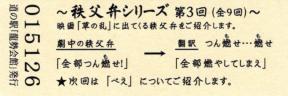 ～秩父弁シリーズ 第3回(全9回)～
映画「草の乱」に出てくる秩父弁をご紹介します。
劇中の秩父弁
「全部つん燃せ!」
→
翻訳 つん燃せ…燃せ
「全部燃やしてしまえ」
★次回は「べえ」についてご紹介します。
015126
道の駅「龍勢会館」発行